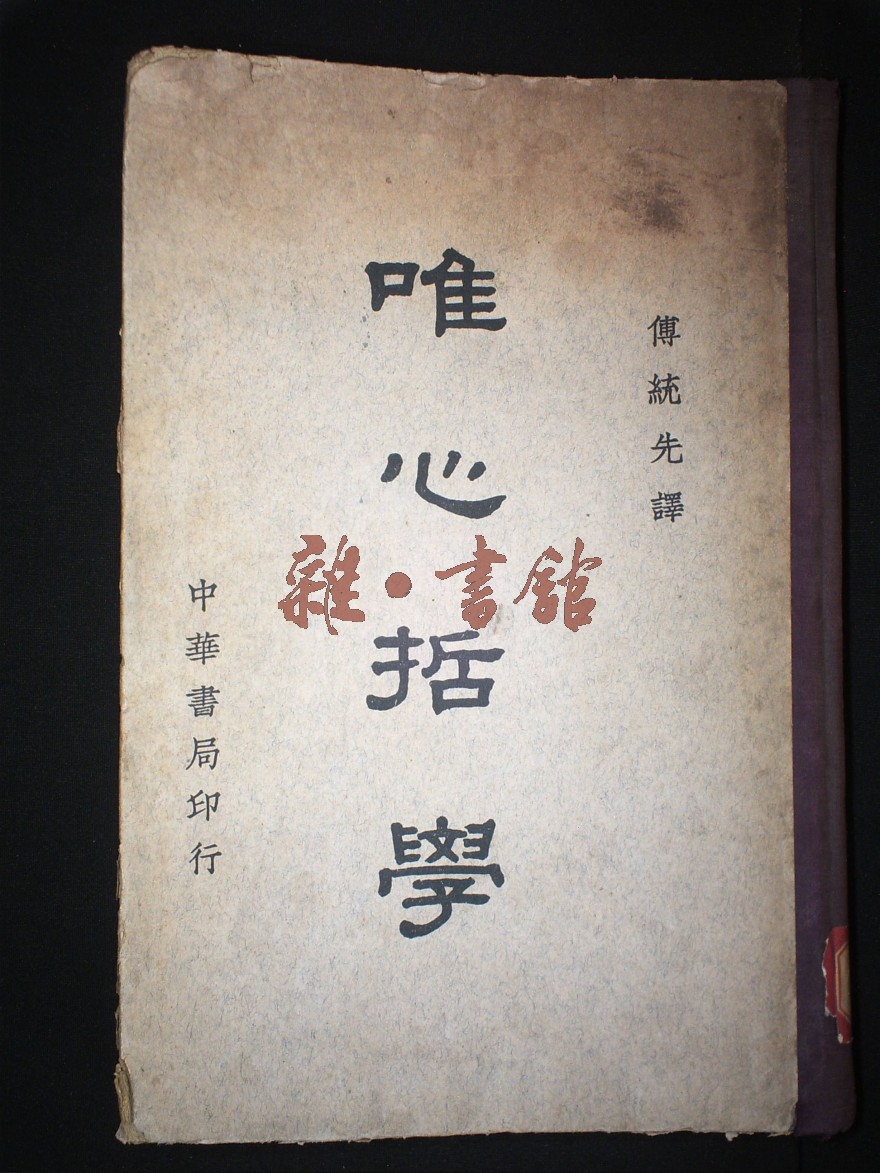 傅統先譯
唯心哲學
中華書局印行
雜·書館